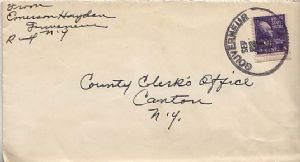 From
Emerson Hayden
Gouverneur
N.Y.
GOUVERNEUR
County Clerk's Office
Canton
N.Y.